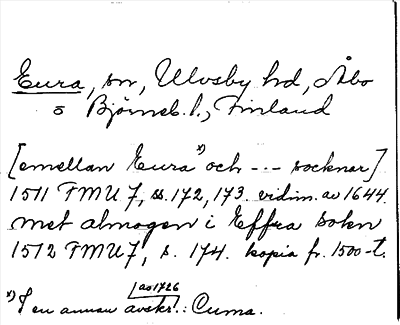 Eura, sn, Ulvsby hd, Åbo
o Björneb. l., Finland
[emellan Eura x) och --- socknar]
1511 FMU 7, ss. 172, 173. vidim. av 1644.
met almogen i Effra sokn
1512 FMU 7, s. 174. kopia fr. 1500-t.
[av 1726
x) I en annan avskr.: Cuma.